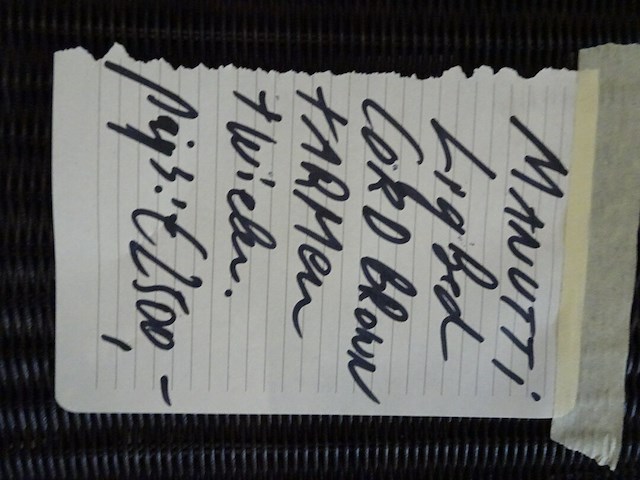 MANUTTI
Ligbed
CORD BROWN
+ARMen
+Wielen.
Prijs: € 2500,-